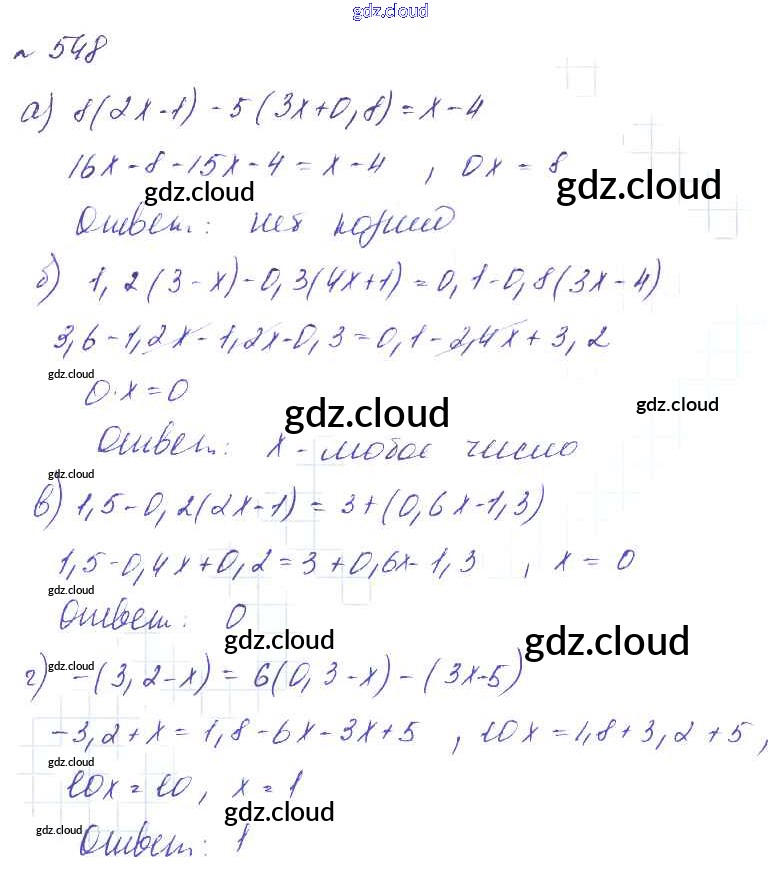 gdz.cloud
№ 548
а) 8(2x-1) - 5(3x+0,8) = x-4
16x-8-15x-4 = x-4 , 0x = 8
gdz.cloud gdz.cloud
Ответ: нет корней
б) 1,2(3-x)-0,3(4x+1) = 0,1-0,8(3x-4)
3,6-1,2x-1,2x-0,3=0,1-2,4x+3,2
gdz.cloud
0·x=0
gdz.cloud gdz.cloud
Ответ: x-любое число
gdz.cloud
в) 1,5-0,2(2x-1) = 3+(0,6x-1,3)
1,5-0,4x+0,2=3+0,6x-1,3 , x = 0
gdz.cloud
Ответ: 0
gdz.cloud gdz.cloud
г) gdz.cloud -(3,2-x) = 6(0,3-x)-(3x-5)
-3,2+x=1,8-6x-3x+5 , 10x=1,8+3,2+5,
gdz.cloud
10x=10, x=1
gdz.cloud
gdz.cloud
Ответ: 1